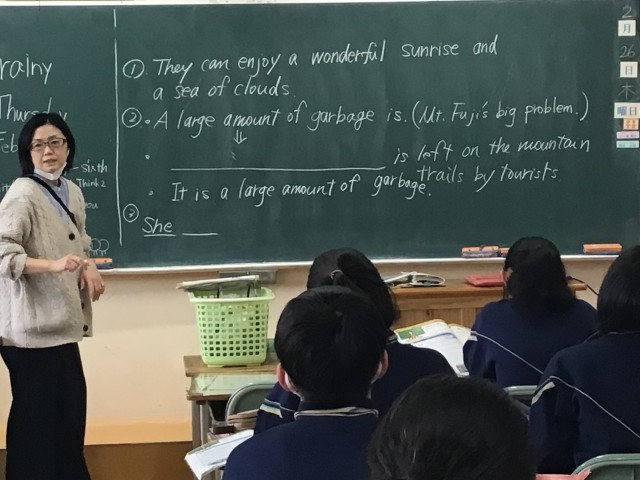 rainy
Thursday
Feb
sixth
Think 2
you
① They can enjoy a wonderful sunrise and
a sea of clouds.
② • A large amount of garbage is. (Mt. Fuji's big problem.)
⇓
• ____________ is left on the mountain
trails by tourists
• It is a large amount of garbage.
③
She ____
2
月
26
日
木
曜日